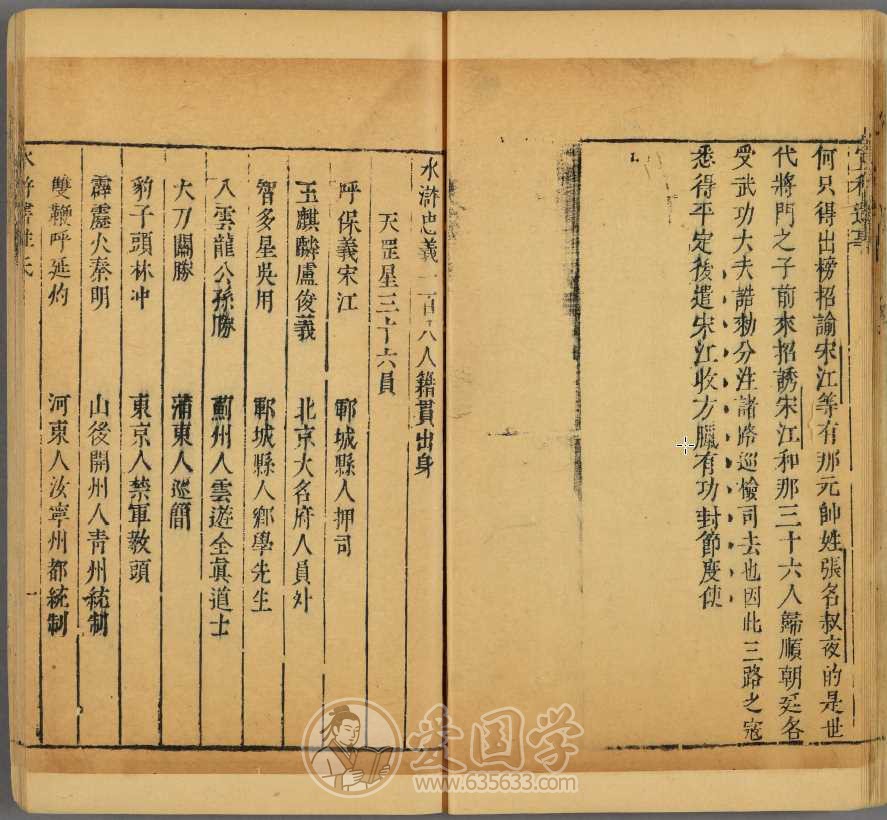 宣和遺事
何只得出榜招諭宋江等有那元帥姓張名叔夜的是世
代將門之子前來招誘宋江和那三十六人歸順朝廷各
受武功大夫誥勑分注諸路巡檢司去也因此三路之寇
悉得平定後遣宋江收方臘有功封節度使
水滸忠義一百八人籍貫出身
天罡星三十六員
呼保義宋江 鄆城縣人押司
玉麒麟盧俊義 北京大名府人員外
智多星吳用 鄆城縣人鄉學先生
入雲龍公孫勝 薊州人雲遊全眞道士
大刀關勝 蒲東人巡簡
豹子頭林冲 東京人禁軍教頭
霹靂火秦明 山後開州人青州統制
雙鞭呼延灼 河東人汝寧州都統制
一
爱国学
www.635633.com